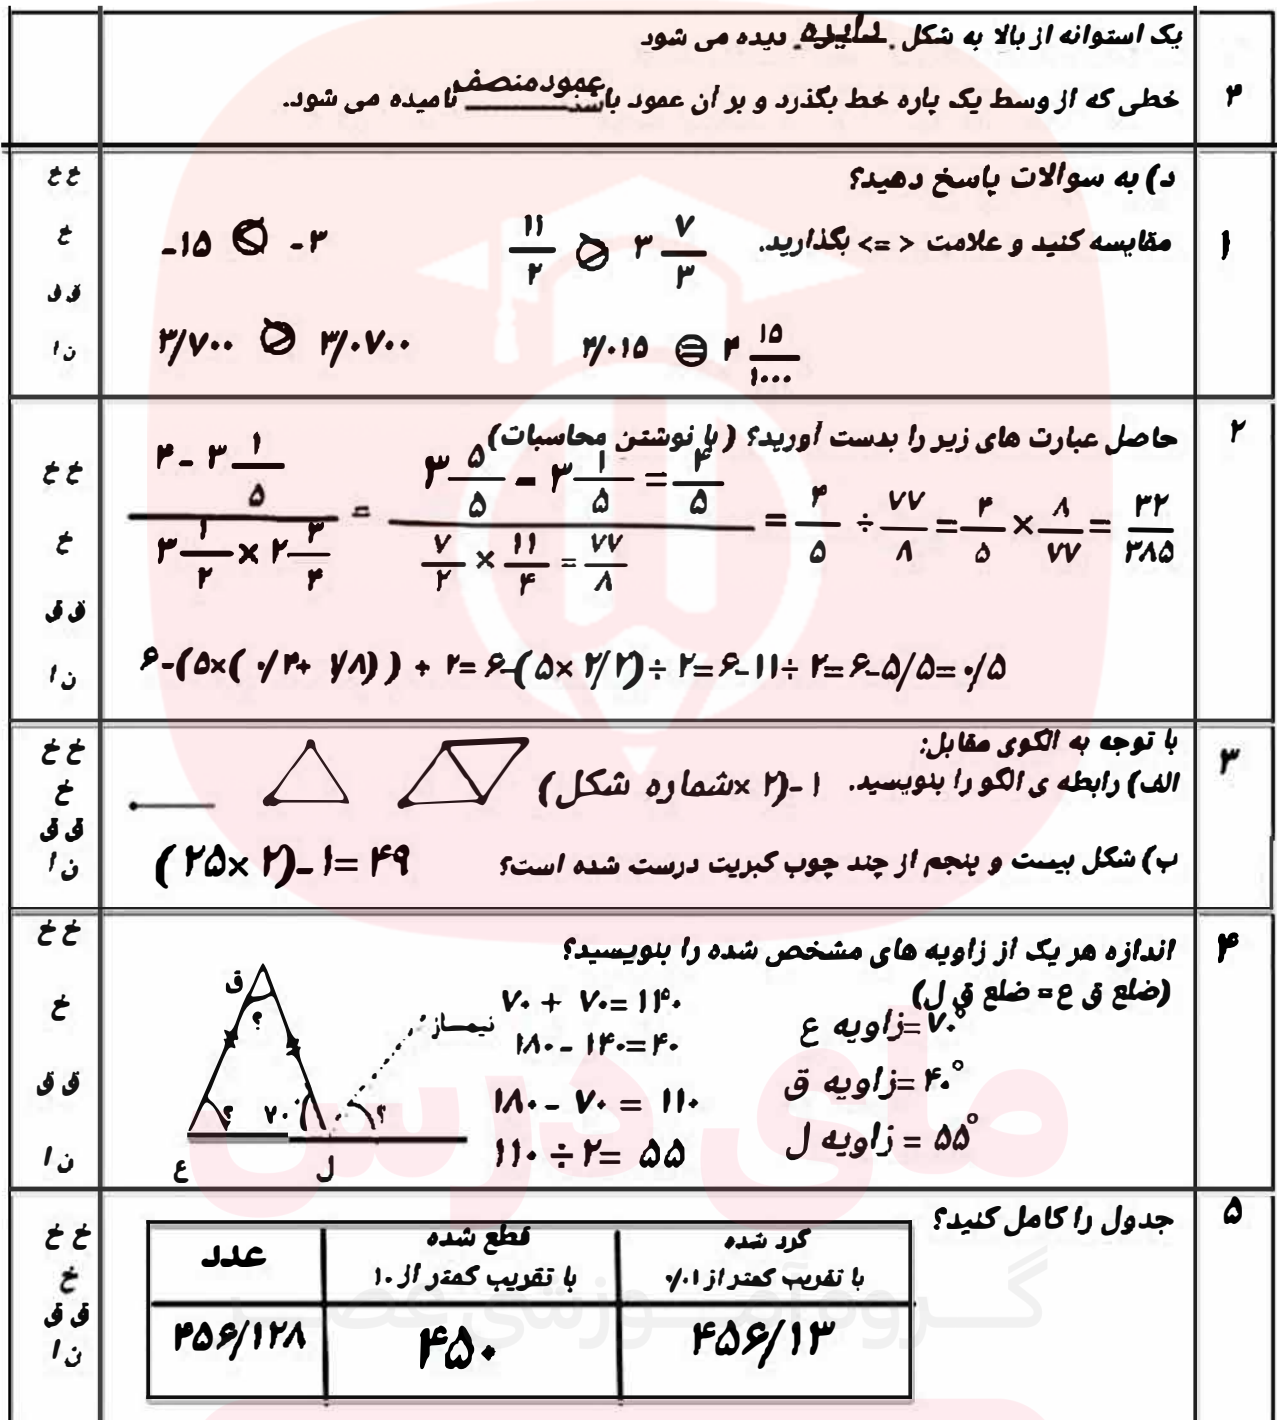 یک استوانه از بالا به شکل دایره دیده می شود
۴ خطی که از وسط یک پاره خط بگذرد و بر آن عمود باشد عمودمنصف نامیده می شود.
خ خ
خ
ق ق
ن ا
۱
د) به سوالات پاسخ دهید؟
مقایسه کنید و علامت < => بگذارید.
۱۱/۲ > ۳ ۷/۳
-۱۵ < -۳
۴/۰۱۵ = ۴ ۱۵/۱۰۰۰
۳/۷۰۰ > ۳/۰۷۰۰
خ خ
خ
ق ق
ن ا
۲
حاصل عبارت های زیر را بدست آورید؟ (با نوشتن محاسبات)
۴ - ۳ ۱/۵
۳ ۱/۲ × ۲ ۳/۴
=
۳ ۵/۵ - ۳ ۱/۵ = ۴/۵
۷/۲ × ۱۱/۴ = ۷۷/۸
= ۴/۵ ÷ ۷۷/۸ = ۴/۵ × ۸/۷۷ = ۳۲/۳۸۵
۶-(۵×(۰/۴+ ۱/۸)) ÷ ۲= ۶-(۵× ۲/۲)÷ ۲= ۶-۱۱÷ ۲= ۶-۵/۵= ۰/۵
خ خ
خ
ق ق
ن ا
۳
با توجه به الگوی مقابل:
الف) رابطه ی الگو را بنویسید.
۱ -(۲ ×شماره شکل)
ب) شکل بیست و پنجم از چند چوب کبریت درست شده است؟
(۲۵× ۲)-۱= ۴۹
خ خ
خ
ق ق
ن ا
۴
اندازه هر یک از زاویه های مشخص شده را بنویسید؟
(ضلع ق ع= ضلع ق ل)
زاویه ع =۷۰°
زاویه ق =۴۰°
زاویه ل = ۵۵°
۷۰ + ۷۰= ۱۴۰
۱۸۰ - ۱۴۰= ۴۰
۱۸۰ - ۷۰ = ۱۱۰
۱۱۰ ÷ ۲= ۵۵
ق
؟
نیمساز
؟
۷۰°
؟
ع
ل
خ خ
خ
ق ق
ن ا
۵
جدول را کامل کنید؟
گرد شده
با تقریب کمتر از ۰/۰۱
قطع شده
با تقریب کمتر از ۱۰
عدد
۴۵۶/۱۳
۴۵۰
۴۵۶/۱۲۸
مای درس
گروه آموزشی عصر